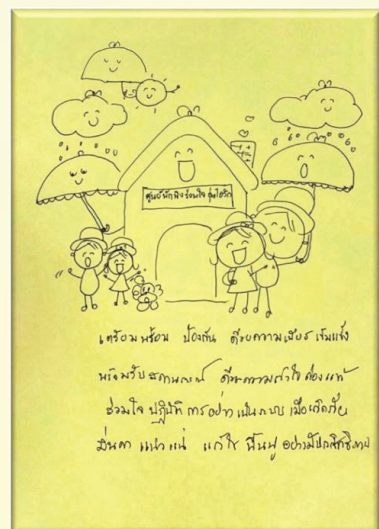 ศูนย์พักพิงร้อนใจ อุ่นไอรัก
เตรียมพร้อม ป้องกัน ด้วยความเพียร เข้มแข็ง
พร้อมรับสถานการณ์ ด้วยความเข้าใจ ถ่องแท้
ร่วมใจ ปฏิบัติการอย่างเป็นระบบ เมื่อเกิดภัย
มั่นคง แน่วแน่ แก้ไข ฟื้นฟู อย่างมีประสิทธิภาพ